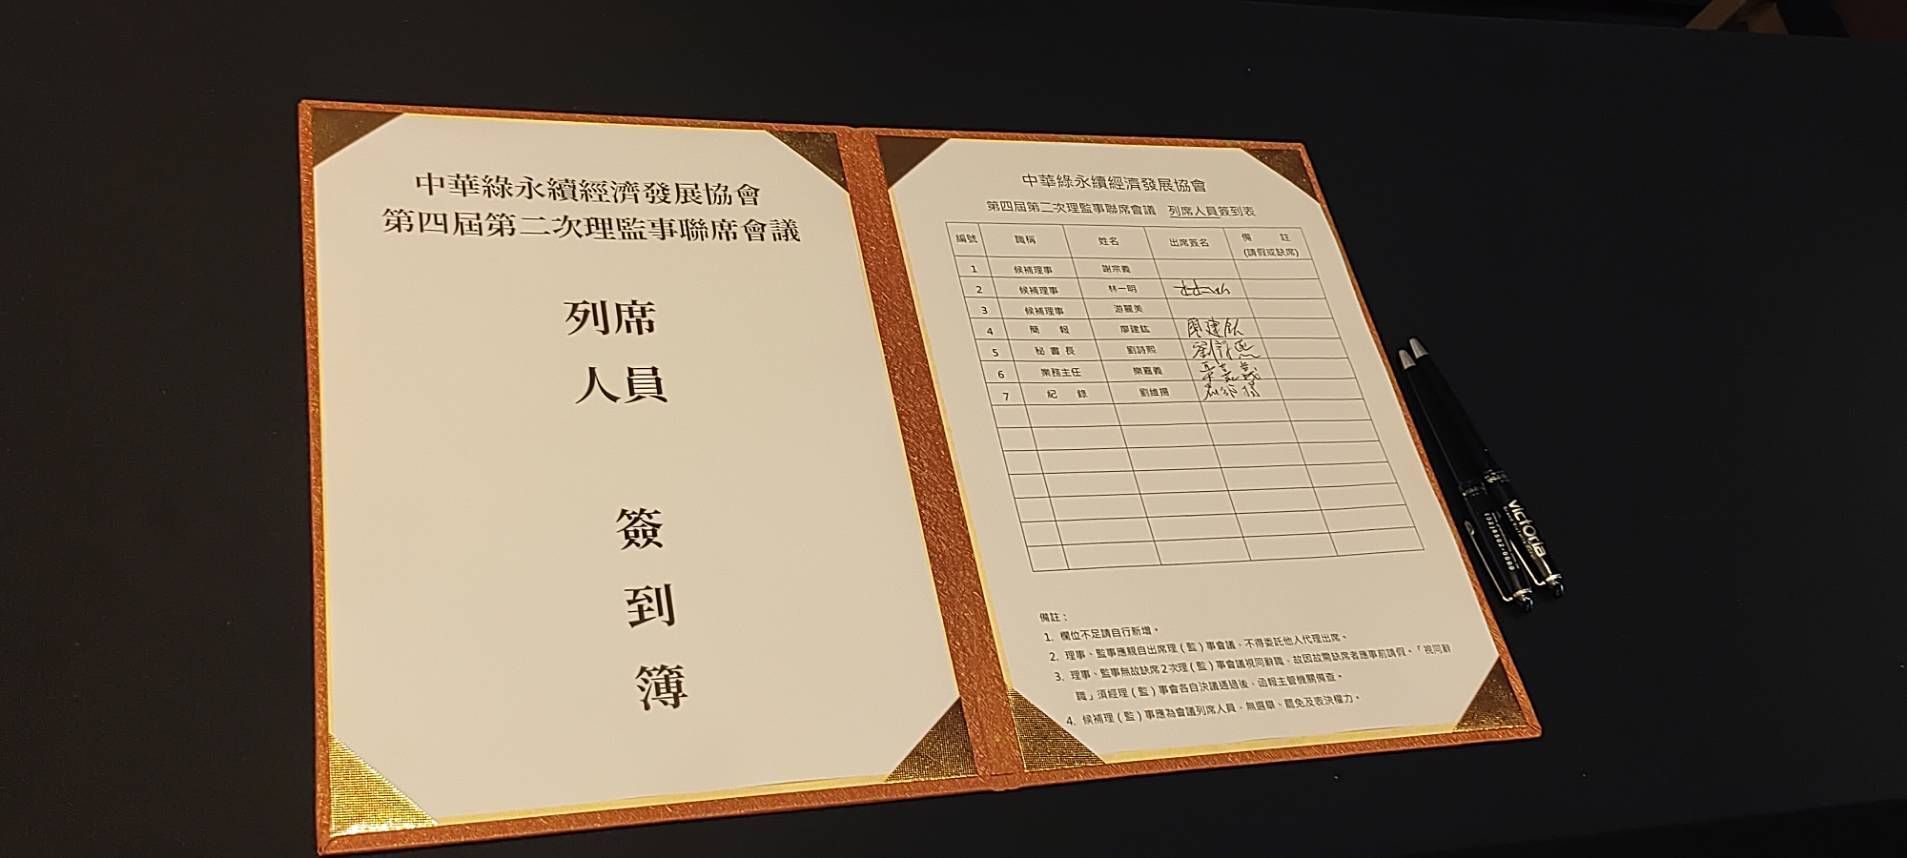 中華綠永續經濟發展協會
第四屆第二次理監事聯席會議
列席
人員
簽
到
簿
中華綠永續經濟發展協會
第四屆第二次理監事聯席會議 列席人員簽到表
編號 職稱 姓名 出席簽名 備 註
(請假或缺席)
1 候補理事 謝宗義
2 候補理事 林一明
3 候補理事 游麗美
4 簡 報 廖建鈜 廖建鈜
5 秘書長 劉詩熙 劉詩熙
6 業務主任 樂嘉義
7 紀 錄 劉維揚
備註：
1. 欄位不足請自行新增。
2. 理事、監事應親自出席理(監)事會議，不得委託他人代理出席。
3. 理事、監事無故缺席2次理(監)事會議視同辭職，故因故需缺席者應事前請假。「視同辭
職」須經理(監)事會各自決議通過後，函報主管機關備查。
4. 候補理(監)事應為會議列席人員，無選舉、罷免及表決權力。
victoria